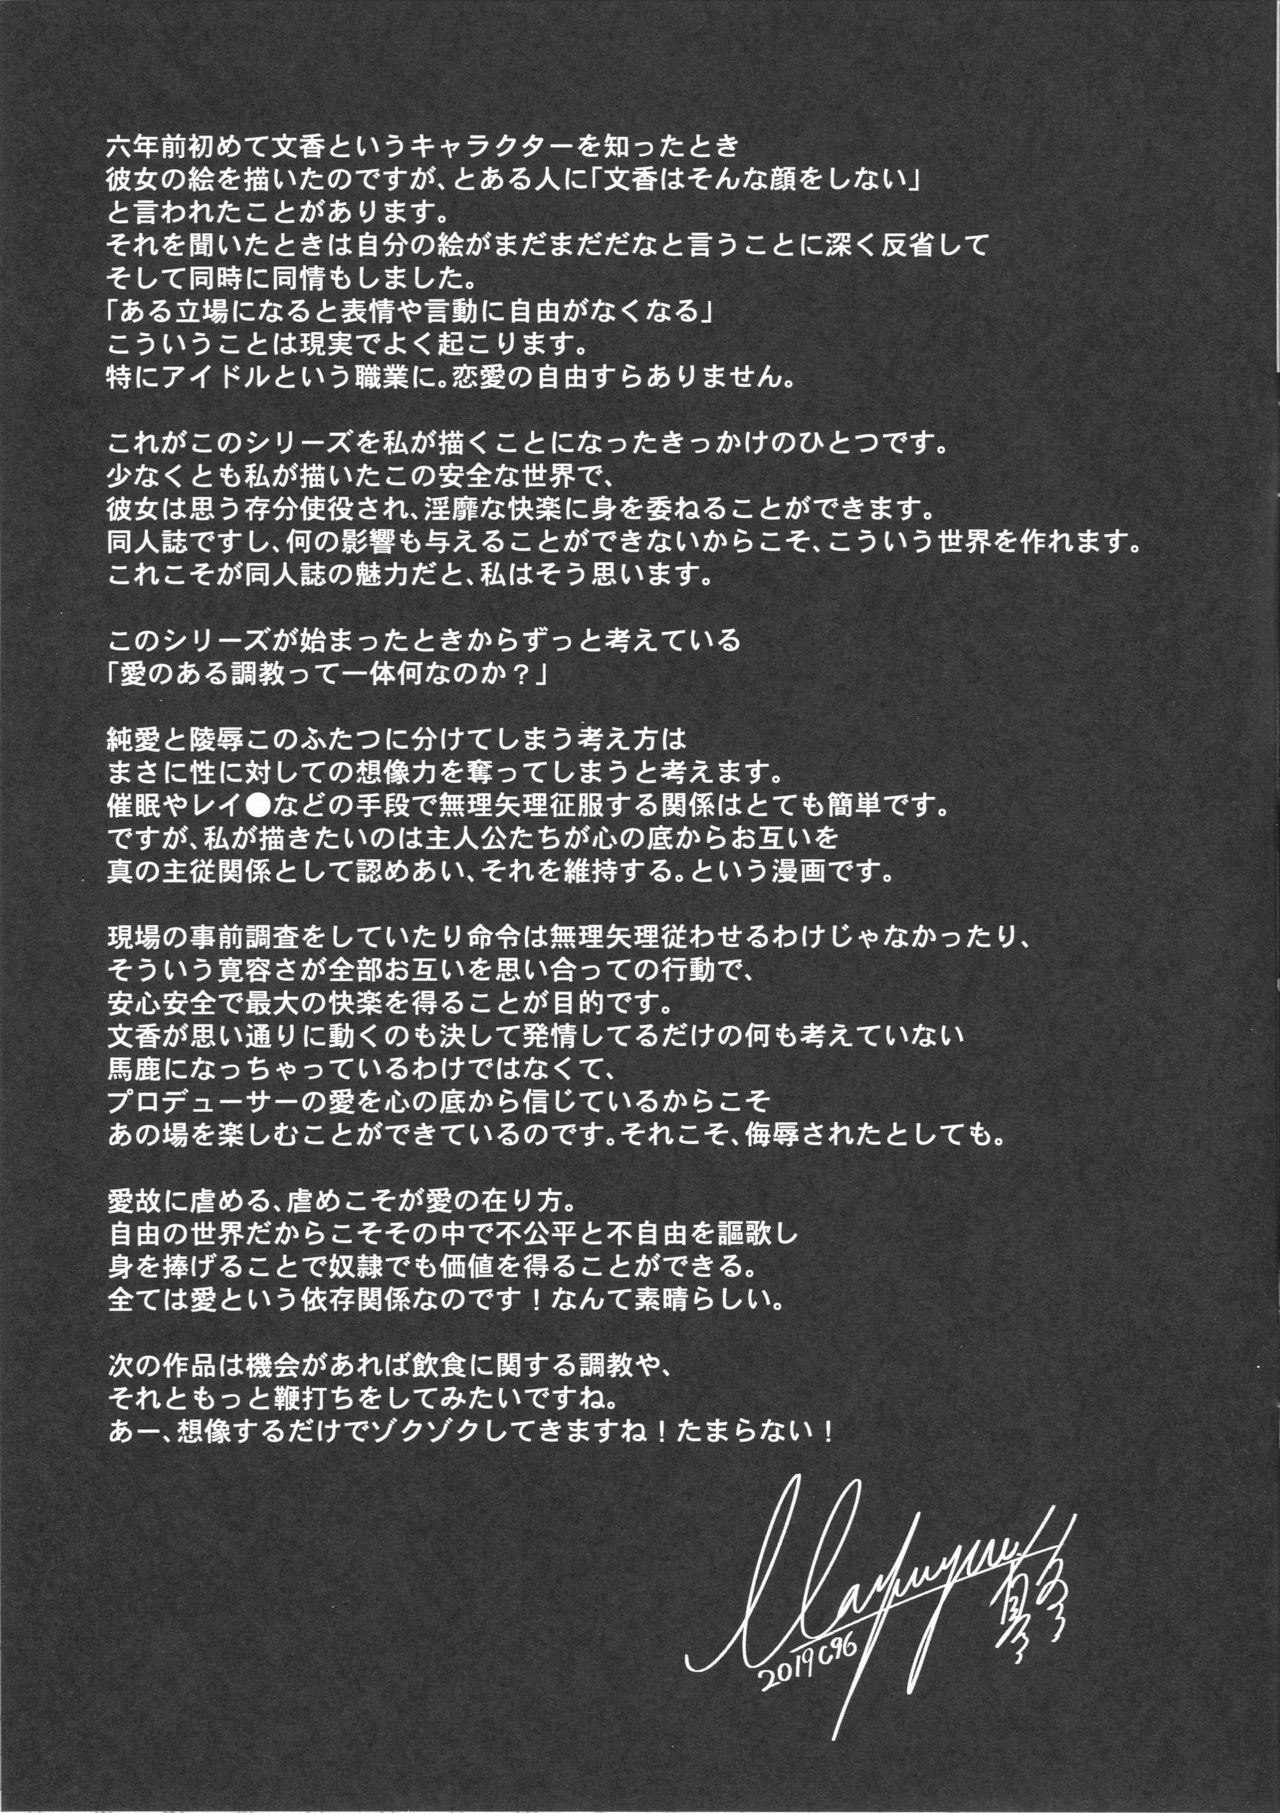 六年前初めて文香というキャラクターを知ったとき
彼女の絵を描いたのですが、とある人に「文香はそんな顔をしない」
と言われたことがあります。
それを聞いたときは自分の絵がまだまだだなと言うことに深く反省して
そして同時に同情もしました。
「ある立場になると表情や言動に自由がなくなる」
こういうことは現実でよく起こります。
特にアイドルという職業に。恋愛の自由すらありません。
これがこのシリーズを私が描くことになったきっかけのひとつです。
少なくとも私が描いたこの安全な世界で、
彼女は思う存分使役され、淫靡な快楽に身を委ねることができます。
同人誌ですし、何の影響も与えることができないからこそ、こういう世界を作れます。
これこそが同人誌の魅力だと、私はそう思います。
このシリーズが始まったときからずっと考えている
「愛のある調教って一体何なのか？」
純愛と陵辱このふたつに分けてしまう考え方は
まさに性に対しての想像力を奪ってしまうと考えます。
催眠やレイ●などの手段で無理矢理征服する関係はとても簡単です。
ですが、私が描きたいのは主人公たちが心の底からお互いを
真の主従関係として認めあい、それを維持する。という漫画です。
現場の事前調査をしていたり命令は無理矢理従わせるわけじゃなかったり、
そういう寛容さが全部お互いを思い合っての行動で、
安心安全で最大の快楽を得ることが目的です。
文香が思い通りに動くのも決して発情してるだけの何も考えていない
馬鹿になっちゃっているわけではなくて、
プロデューサーの愛を心の底から信じているからこそ
あの場を楽しむことができているのです。それこそ、侮辱されたとしても。
愛故に虐める、虐めこそが愛の在り方。
自由の世界だからこそその中で不公平と不自由を謳歌し
身を捧げることで奴隷でも価値を得ることができる。
全ては愛という依存関係なのです！なんて素晴らしい。
次の作品は機会があれば飲食に関する調教や、
それともっと鞭打ちをしてみたいですね。
あー、想像するだけでゾクゾクしてきますね！たまらない！
2019 C96